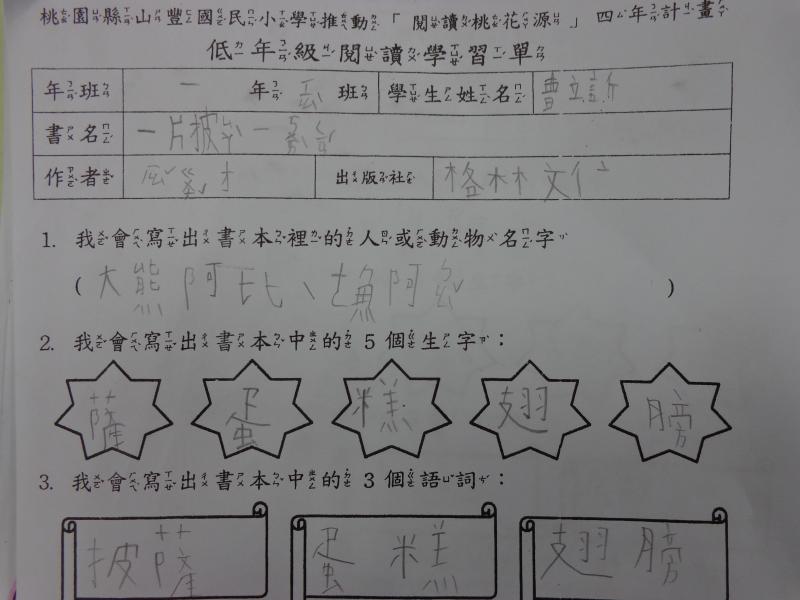 桃園縣山豐國民小學推動「閱讀桃花源」四年計畫
低年級閱讀學習單
年班 一年ㄊㄧㄢ班 學生姓名
書名 一片披ㄙㄚ一
作者 出版社 格林文化
1. 我會寫出書本裡的人或動物名字
(大熊阿比、 阿ㄅㄠ)
2. 我會寫出書本中的5個生字：
薩 蛋 糕 翅 膀
3. 我會寫出書本中的3個語詞：
披薩 蛋糕 翅膀